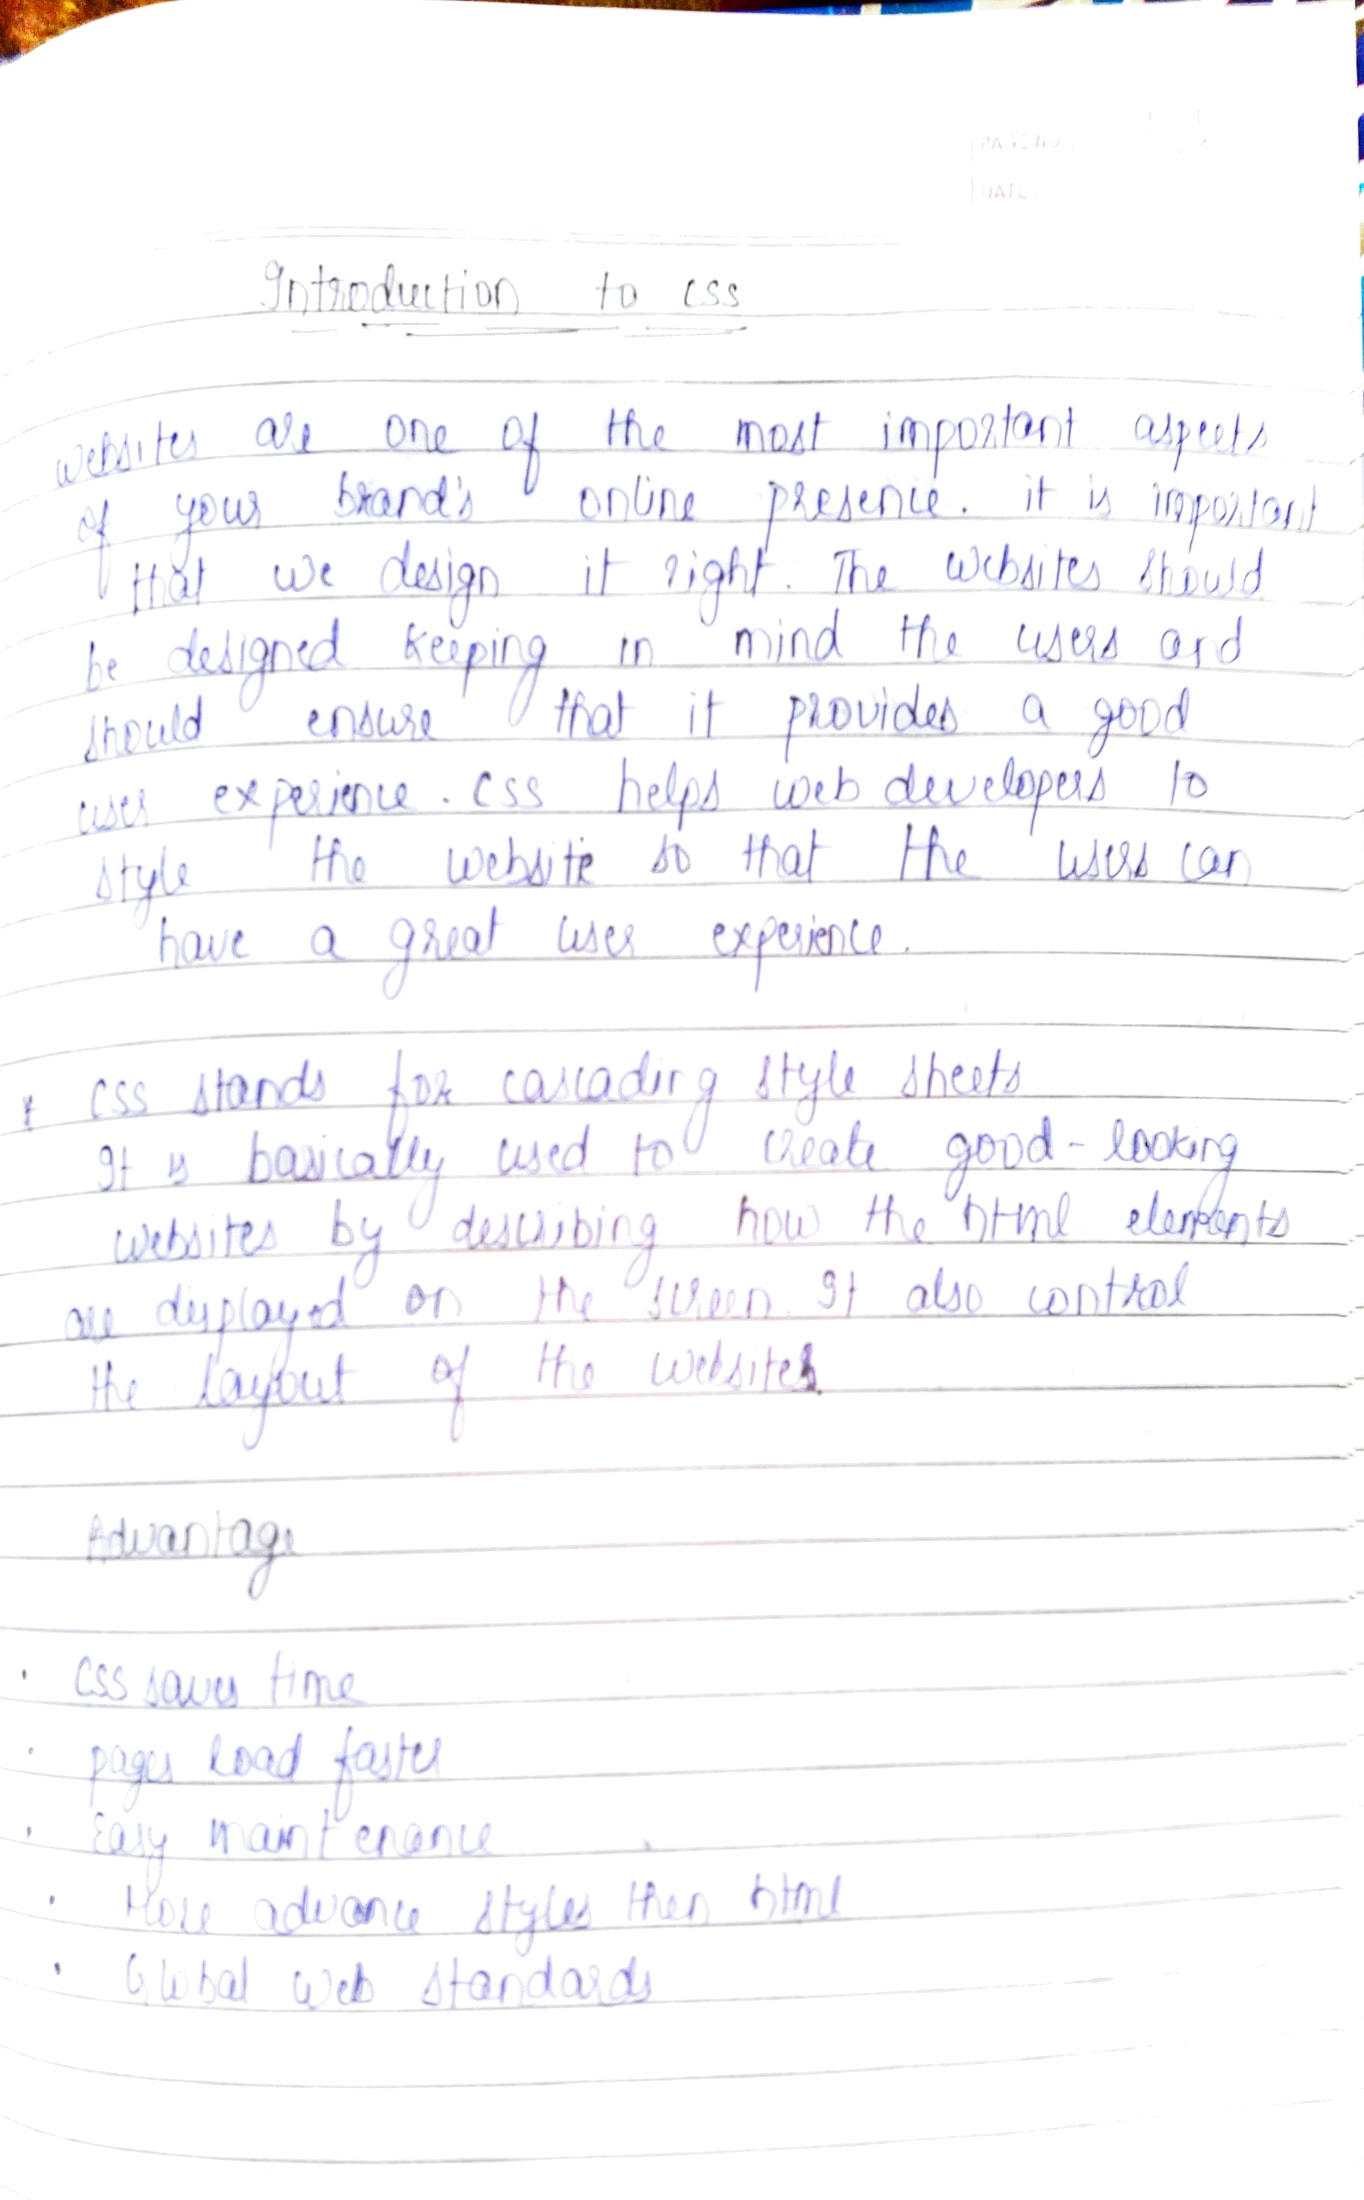 PAGE NO.
DATE
Introduction to CSS
websites are one of the most important aspects
of your brand's online presence. it is important
that we design it right. The websites should
be designed keeping in mind the users and
should ensure that it provides a good
user experience. CSS helps web developers to
style the website so that the users can
have a great user experience.
* CSS stands for cascading style sheets
It is basically used to create good-looking
websites by describing how the html elements
are displayed on the screen. It also control
the layout of the websites.
Advantage
• CSS saves time
• pages load faster
• Easy maintenance
• More advance styles then html
• Global web standards